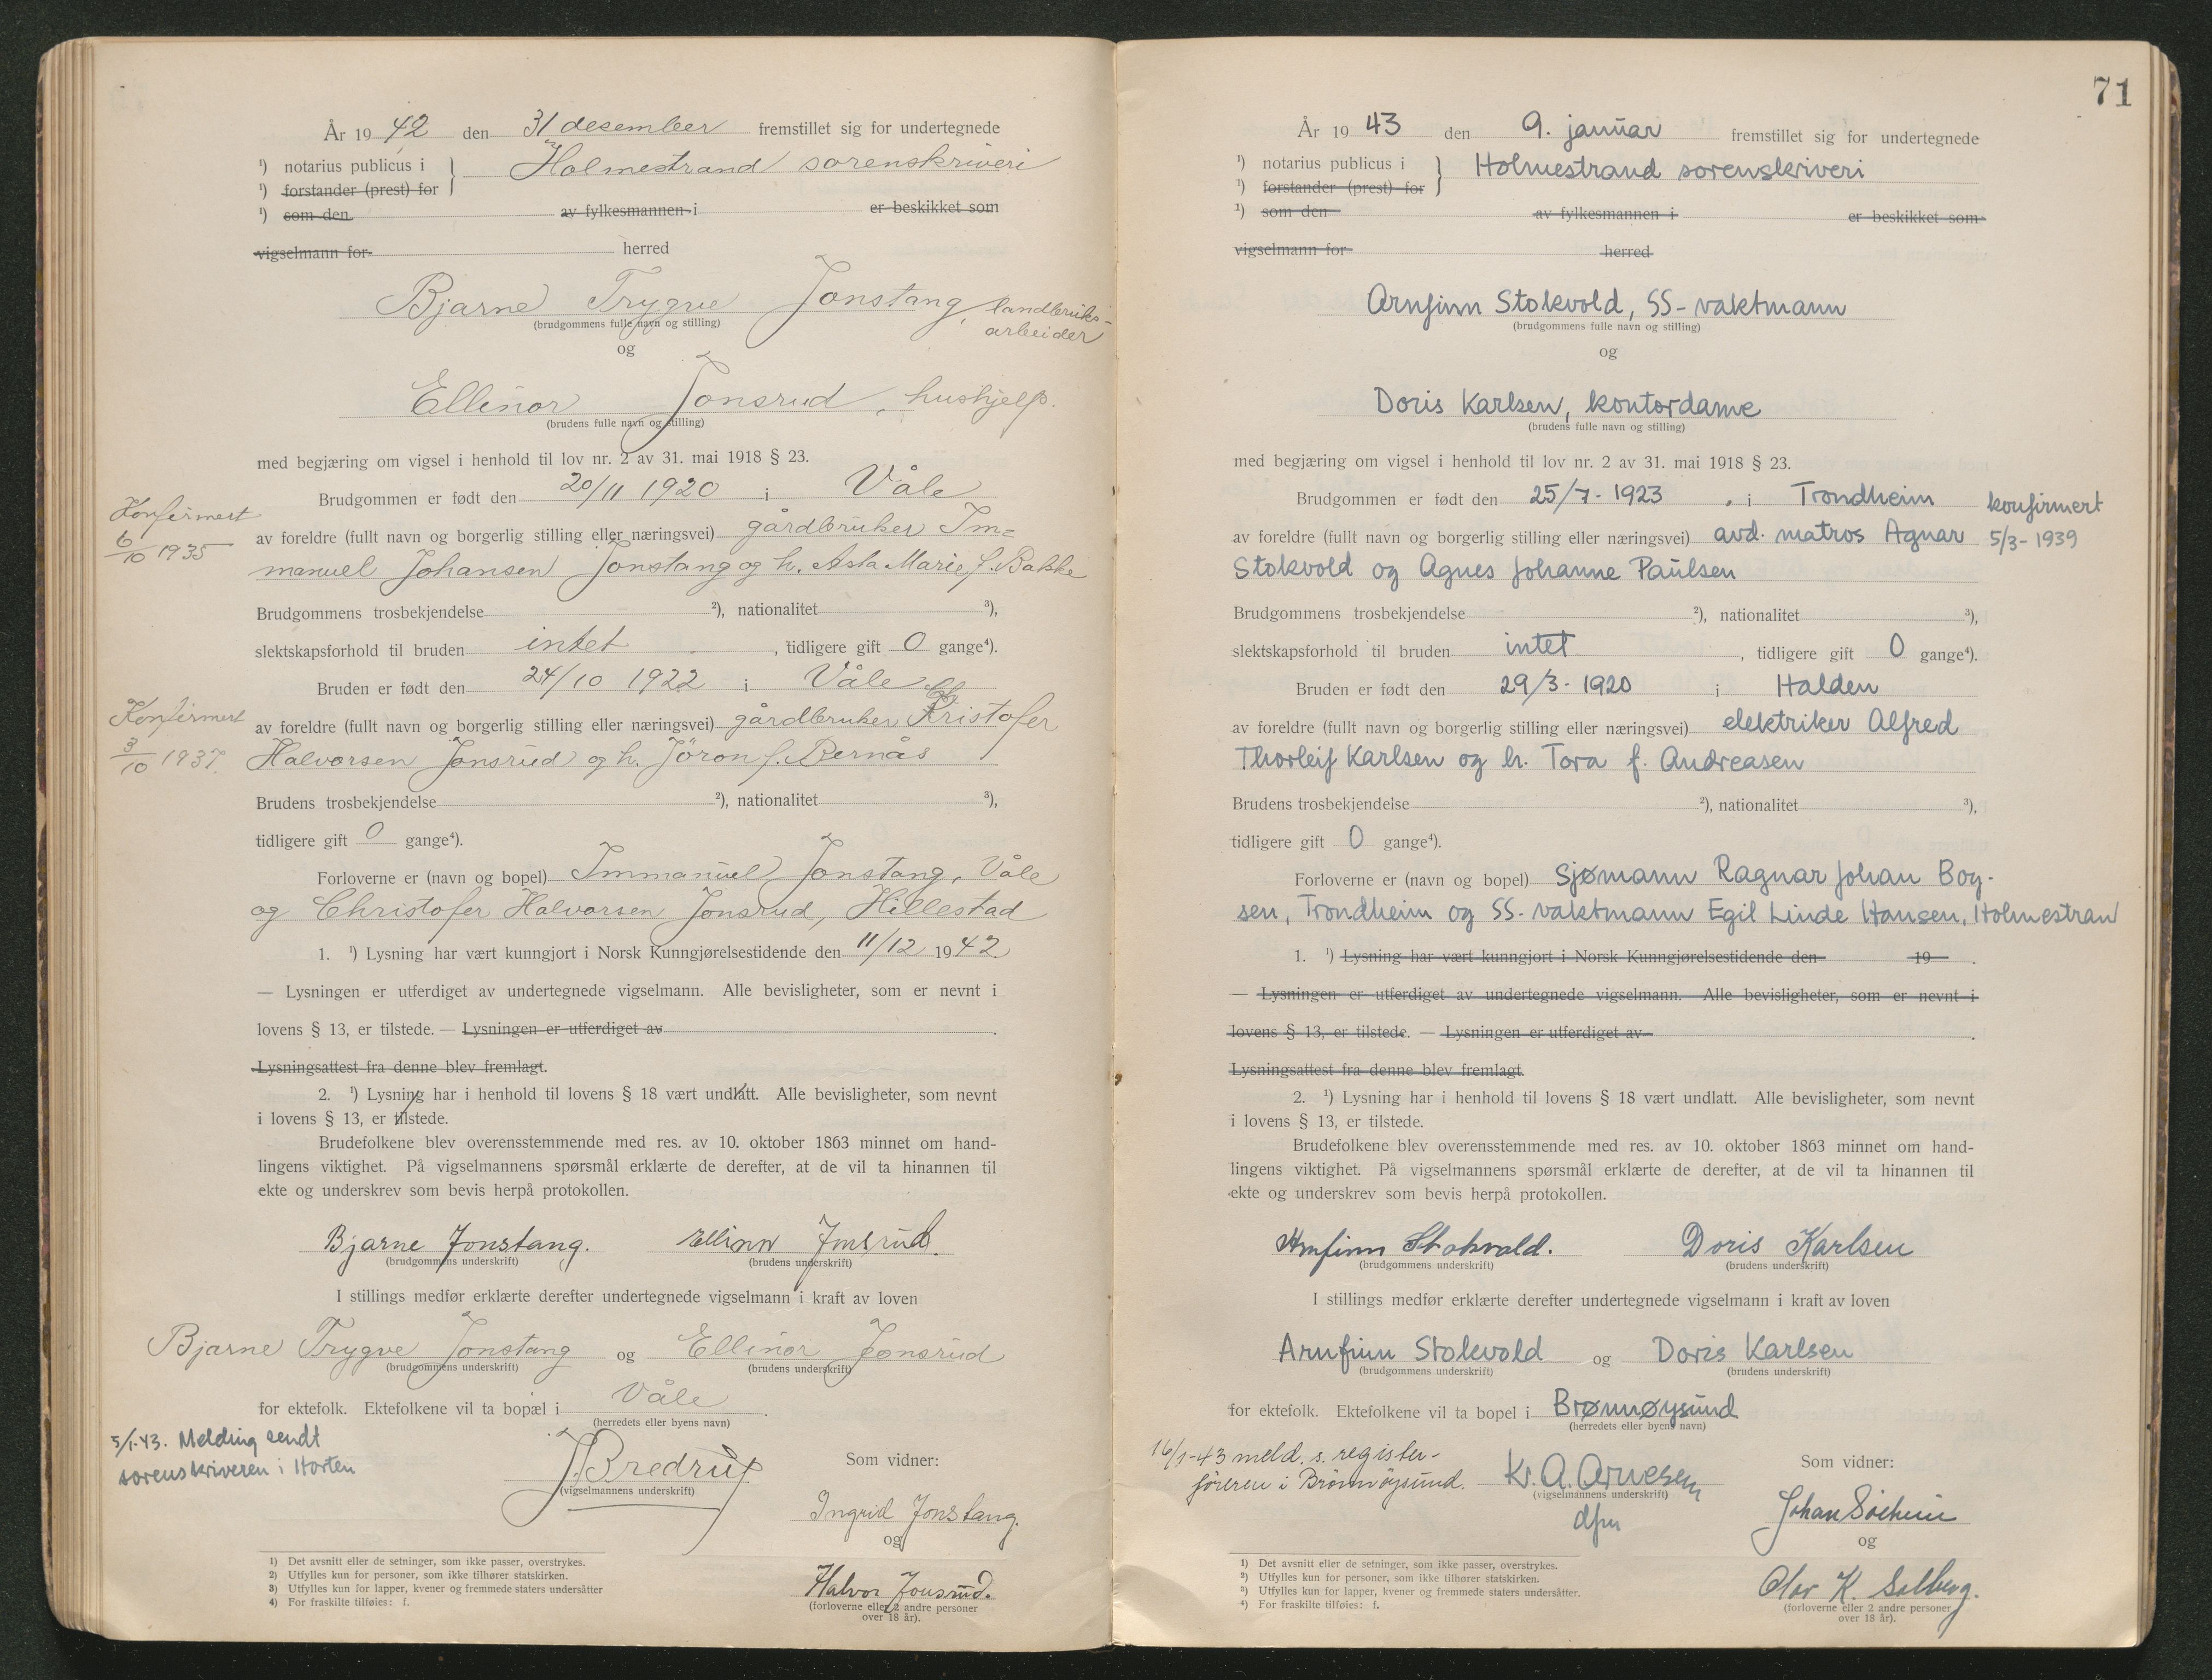 År 19 42 den 31 desember fremstillet sig for undertegnede
¹) notarius publicus i } Holmestrand sorenskriveri
¹) forstander (prest) for
¹) som den av fylkesmannen i er beskikket som
vigselmann for herred
Bjarne Trygve Jonstang, landbruks-
arbeider
(brudgommens fulle navn og stilling)
og
Ellinor Jonsrud, hushjelp.
(brudens fulle navn og stilling)
med begjæring om vigsel i henhold til lov nr. 2 av 31. mai 1918 § 23.
Brudgommen er født den 20/11 1920 i Våle
Konfirmert
6/10 1935
av foreldre (fullt navn og borgerlig stilling eller næringsvei) gårdbruker Im=
manuel Johansen Jonstang og h. Asta Marie f. Bakke
Brudgommens trosbekjendelse ²), nationalitet ³),
slektskapsforhold til bruden intet, tidligere gift 0 gange⁴).
Bruden er født den 24/10 1922 i Våle
Konfirmert
3/10 1937.
av foreldre (fullt navn og borgerlig stilling eller næringsvei) gårdbruker Christofer
Halvorsen Jonsrud og h. Jöron f. Bernås
Brudens trosbekjendelse ²), nationalitet ³),
tidligere gift 0 gange⁴).
Forloverne er (navn og bopel) Immanuel Jonstang, Våle
og Christofer Halvorsen Jonsrud, Hillestad
1. ¹) Lysning har vært kunngjort i Norsk Kunngjørelsestidende den 11/12 1942
— Lysningen er utferdiget av undertegnede vigselmann. Alle bevisligheter, som er nevnt i
lovens § 13, er tilstede. — Lysningen er utferdiget av .
Lysningsattest fra denne blev fremlagt.
2. ¹) Lysning har i henhold til lovens § 18 vært undlatt. Alle bevisligheter, som nevnt
i lovens § 13, er tilstede.
Brudefolkene blev overensstemmende med res. av 10. oktober 1863 minnet om hand-
lingens viktighet. På vigselmannens spørsmål erklærte de derefter, at de vil ta hinannen til
ekte og underskrev som bevis herpå protokollen.
Bjarne Jonstang. Ellinor Jonsrud.
(brudgommens underskrift) (brudens underskrift)
I stillings medfør erklærte derefter undertegnede vigselmann i kraft av loven
Bjarne Trygve Jonstang og Ellinor Jonsrud
(brudgommens underskrift) (brudens underskrift)
for ektefolk. Ektefolkene vil ta bopæl i Våle .
(herredets eller byens navn)
5/1-43. Melding sendt
sorenskriveren i Horten
J. Bredrup
(vigselmannens underskrift)
Som vidner:
Ingrid Jonstang.
og
Halvor Jonsrud.
(forloverne eller 2 andre personer
over 18 år).
1) Det avsnitt eller de setninger, som ikke passer, overstrykes.
2) Utfylles kun for personer, som ikke tilhører statskirken.
3) Utfylles kun for lapper, kvener og fremmede staters undersåtter
4) For fraskilte tilføies: f.
71
År 19 43 den 9. januar fremstillet sig for undertegnede
¹) notarius publicus i } Holmestrand sorenskriveri
¹) forstander (prest) for
¹) som den av fylkesmannen i er beskikket som
vigselmann for herred
Arnfinn Stokvold, SS-vaktmann
(brudgommens fulle navn og stilling)
og
Doris Karlsen, kontordame
(brudens fulle navn og stilling)
med begjæring om vigsel i henhold til lov nr. 2 av 31. mai 1918 § 23.
Brudgommen er født den 25/7-1923 . i Trondheim
konfirmert
5/3-1939
av foreldre (fullt navn og borgerlig stilling eller næringsvei) avd. matros Agnar
Stokvold og Agnes Johanne Paulsen
Brudgommens trosbekjendelse ²), nationalitet ³),
slektskapsforhold til bruden intet, tidligere gift 0 gange⁴).
Bruden er født den 29/3-1920 i Halden
av foreldre (fullt navn og borgerlig stilling eller næringsvei) elektriker Alfred
Thorleif Karlsen og h. Tora f. Andreasen
Brudens trosbekjendelse ²), nationalitet ³),
tidligere gift 0 gange⁴).
Forloverne er (navn og bopel) sjømann Ragnar Johan Boy-
sen, Trondheim og SS-vaktmann Egil Linde Hansen, Holmestran
1. ¹) Lysning har vært kunngjort i Norsk Kunngjørelsestidende den 19 .
— Lysningen er utferdiget av undertegnede vigselmann. Alle bevisligheter, som er nevnt i
lovens § 13, er tilstede. — Lysningen er utferdiget av .
Lysningsattest fra denne blev fremlagt.
2. ¹) Lysning har i henhold til lovens § 18 vært undlatt. Alle bevisligheter, som nevnt
i lovens § 13, er tilstede.
Brudefolkene blev overensstemmende med res. av 10. oktober 1863 minnet om hand-
lingens viktighet. På vigselmannens spørsmål erklærte de derefter, at de vil ta hinannen til
ekte og underskrev som bevis herpå protokollen.
Arnfinn Stokvold. Doris Karlsen
(brudgommens underskrift) (brudens underskrift)
I stillings medfør erklærte derefter undertegnede vigselmann i kraft av loven
Arnfinn Stokvold og Doris Karlsen
(brudgommens underskrift) (brudens underskrift)
for ektefolk. Ektefolkene vil ta bopel i Brønnøysund
(herredets eller byens navn)
16/1-43 meld. s. register-
føreren i Brönnöysund.
Kr. A. Arnesen
(vigselmannens underskrift)
dfm
Som vidner:
Johan Solheim
og
Olav K. Solberg.
(forloverne eller 2 andre personer
over 18 år).
1) Det avsnitt eller de setninger, som ikke passer, overstrykes.
2) Utfylles kun for personer, som ikke tilhører statskirken.
3) Utfylles kun for lapper, kvener og fremmede staters undersåtter.
4) For fraskilte tilføies: f.